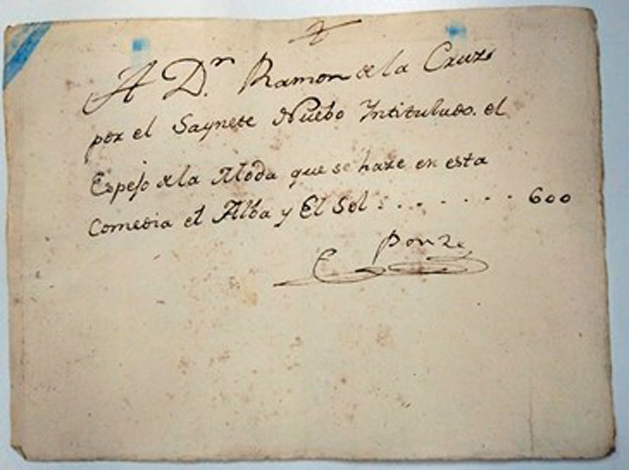 A Dn. Ramon de la Cruz
por el Saynete Nuebo Intitulado. el
Espejo de la Moda que se haze en esta
Comedia el Alba y El Sol : . . . . . . . 600
Ponze